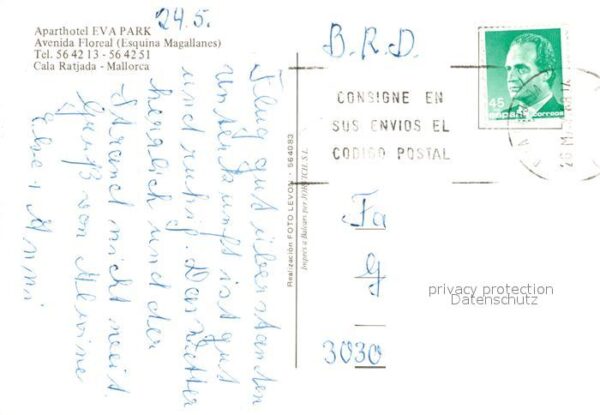 Aparthotel EVA PARK
Avenida Floreal (Esquina Magallanes)
Tel. 56 42 13 - 56 42 51
Cala Ratjada - Mallorca
24.5.
Flug gut überstanden
Unterkunft ist gut
und ruhig. Das Wetter
herrlich und der
Strand nicht weit.
Gruß von Alwine
Anni
Realización FOTO LEVON - 564083
B.R.D.
CONSIGNE EN
SUS ENVIOS EL
CODIGO POSTAL
45
españa correos
Fa
G
privacy protection
Datenschutz
3030